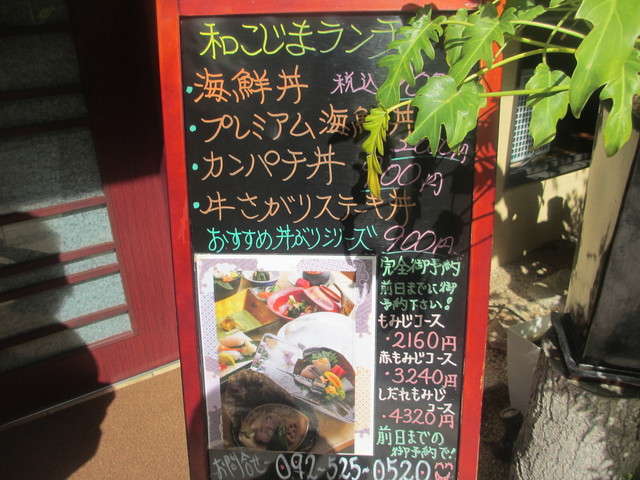 和こじまランチ
・海鮮丼 税込
・プレミアム海鮮丼
・カンパチ丼 00円
・牛さがりステーキ丼
おすすめ丼がリシリーズ 900円
完全御予約
前日までに御
予約下さい!
もみじコース
・2160円
赤もみじコース
・3240円
しだれもみじ
コース
・4320円
前日までの
御予約で!
お問合せ 092-525-0520